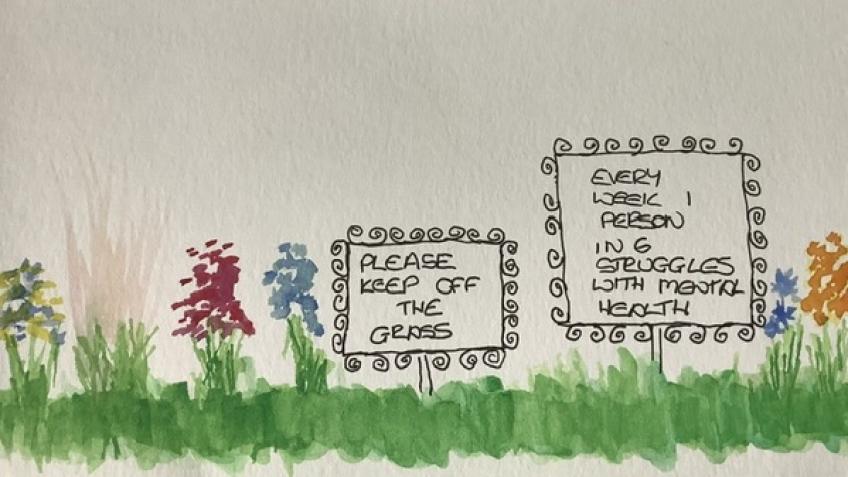 PLEASE
KEEP OFF
THE
GRASS
EVERY
WEEK 1
PERSON
IN 6
STRUGGLES
WITH MENTAL
HEALTH